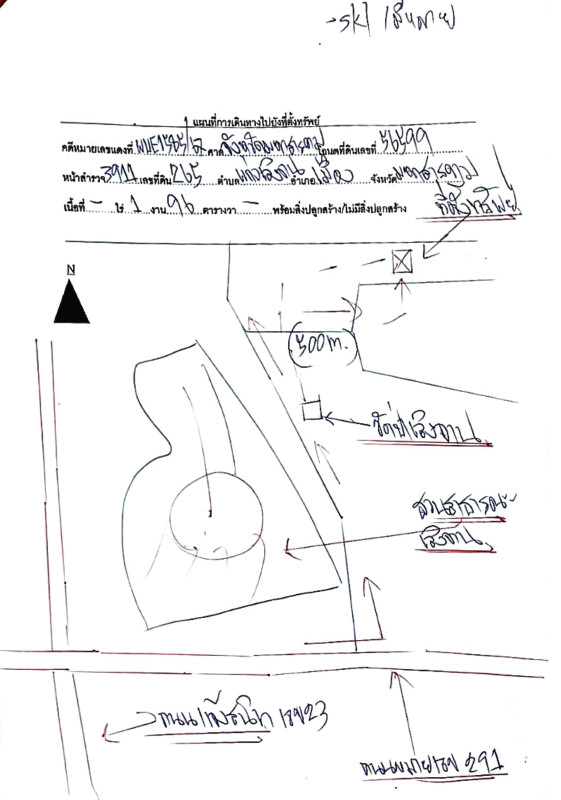 แผนที่การเดินทางไปยังที่ตั้งทรัพย์
คดีหมายเลขแดงที่ ศาล จังหวัดมหาสารคาม โฉนดที่ดินเลขที่ 56599
หน้าสำรวจ 3911 เลขที่ดิน 265 ตำบล แก่งเลิงจาน อำเภอ เมือง จังหวัด มหาสารคาม
เนื้อที่ - ไร่ 1 งาน 96 ตารางวา - พร้อมสิ่งปลูกสร้าง/ไม่มีสิ่งปลูกสร้าง
ที่ตั้งทรัพย์
N
500 m.
วัดป่าเลิงจาน
สวนสาธารณะ
เลิงจาน
ถนน 23
ถนนหมายเลข 291